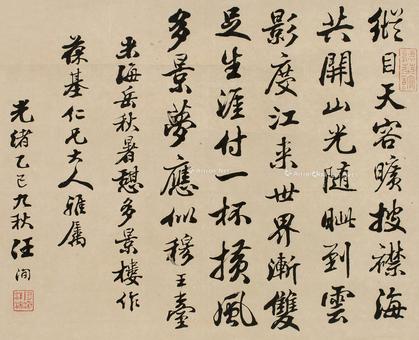 纵目天容旷披襟海
共開山光随眦到雲
影度江来世界漸雙
足生涯付一杯横風
多景夢應似穆王臺
米海岳秋暑憩多景樓作
葆基仁兄大人雅属
光緒乙巳九秋汪洵